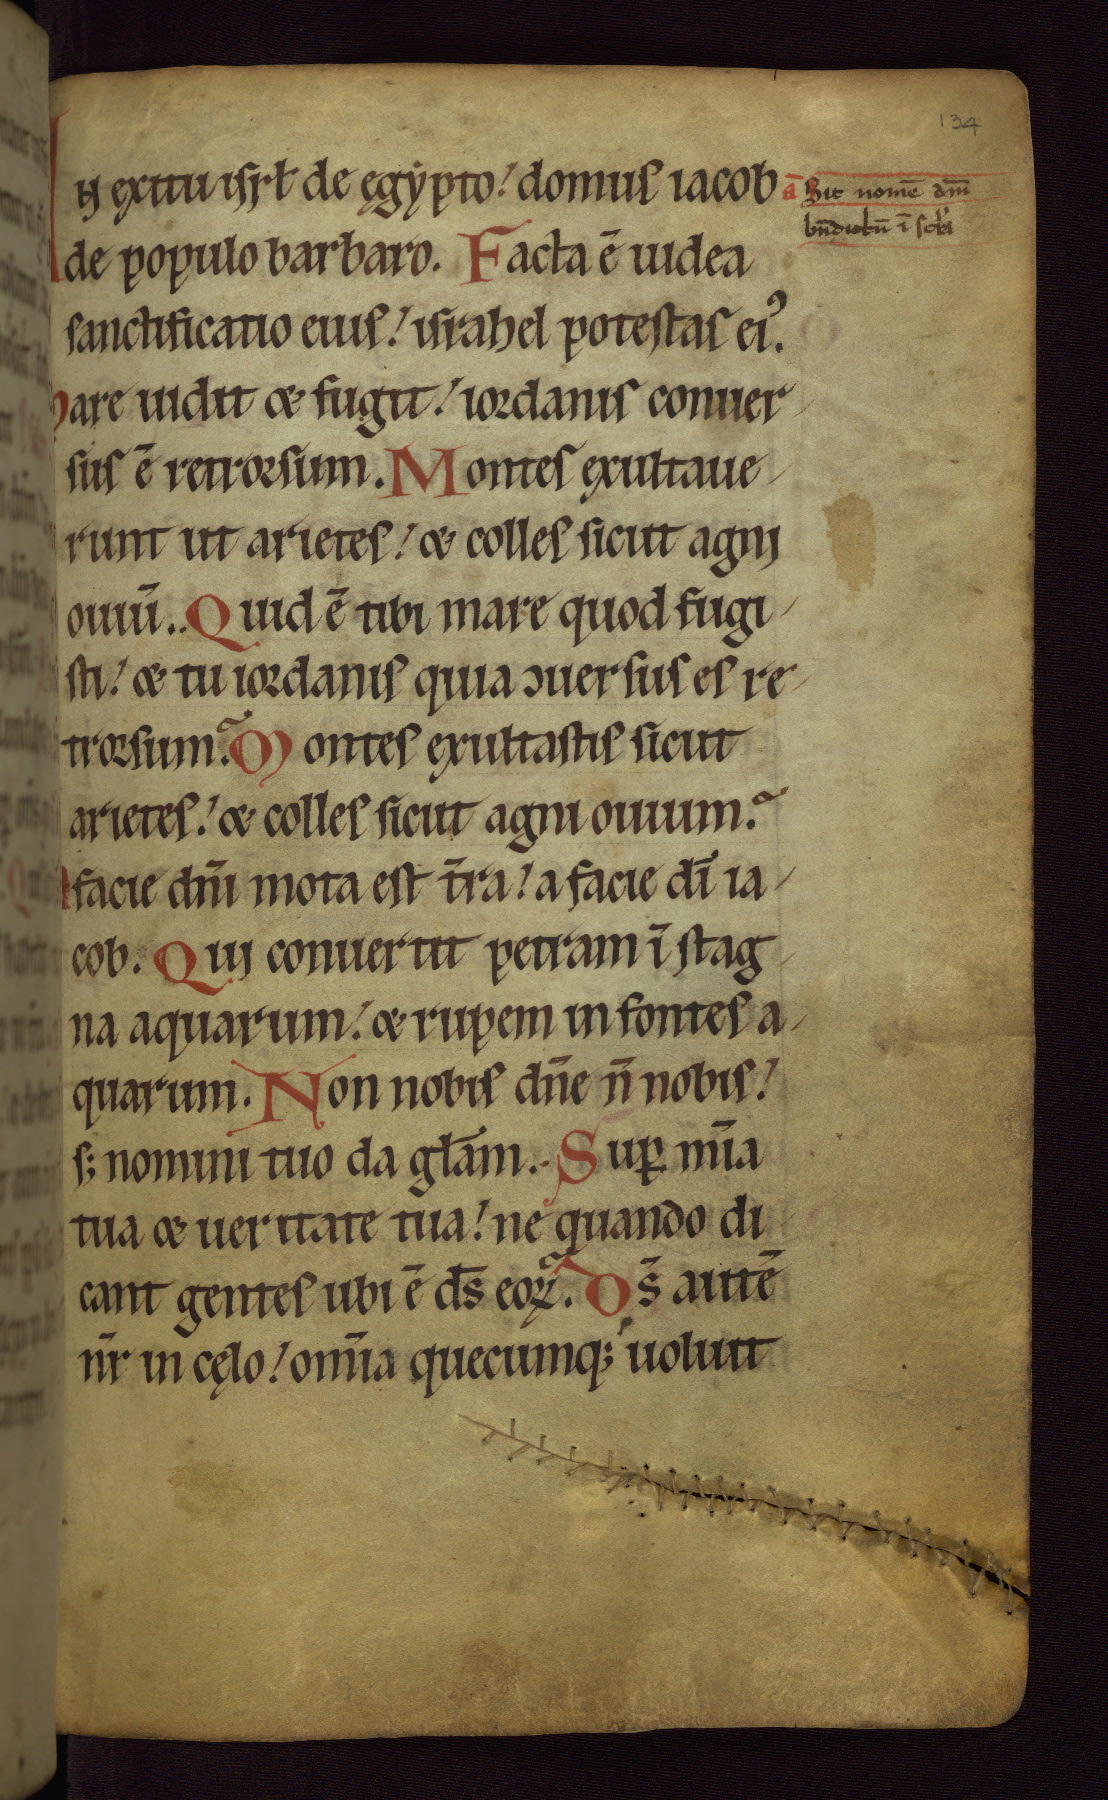 134
IN exitu isrł de ęgypto! domus iacob
de populo barbaro. Facta ē iudea
sanctificatio eius! israhel potestas ei⁹.
Mare uidit & fugit! iordanis conuer-
sus ē retrorsum. Montes exultaue-
runt ut arietes! & colles sicut agni
ouiū.. Quid ē tibi mare quod fugi-
sti! & tu iordanis quia ɔuersus es re-
trorsum? Montes exultastis sicut
arietes! & colles sicut agni ouium?
A facie dn̄i mota est t̄ra! a facie dī ia-
cob. Qui conuertit petram ī stag-
na aquarum! & rupem in fontes a-
quarum. Non nobis dn̄e n̄ nobis!
s; nomini tuo da głam.. Suꝑ mīa
tua & ueritate tua! ne quando di
cant gentes ubi ē ds̄ eoꝝ? Ds̄ autē
nr̄ in cęlo! om̄ia quecumq; uoluit
ā Sit nomē dn̄i
bn̄dictū ī sc̄la